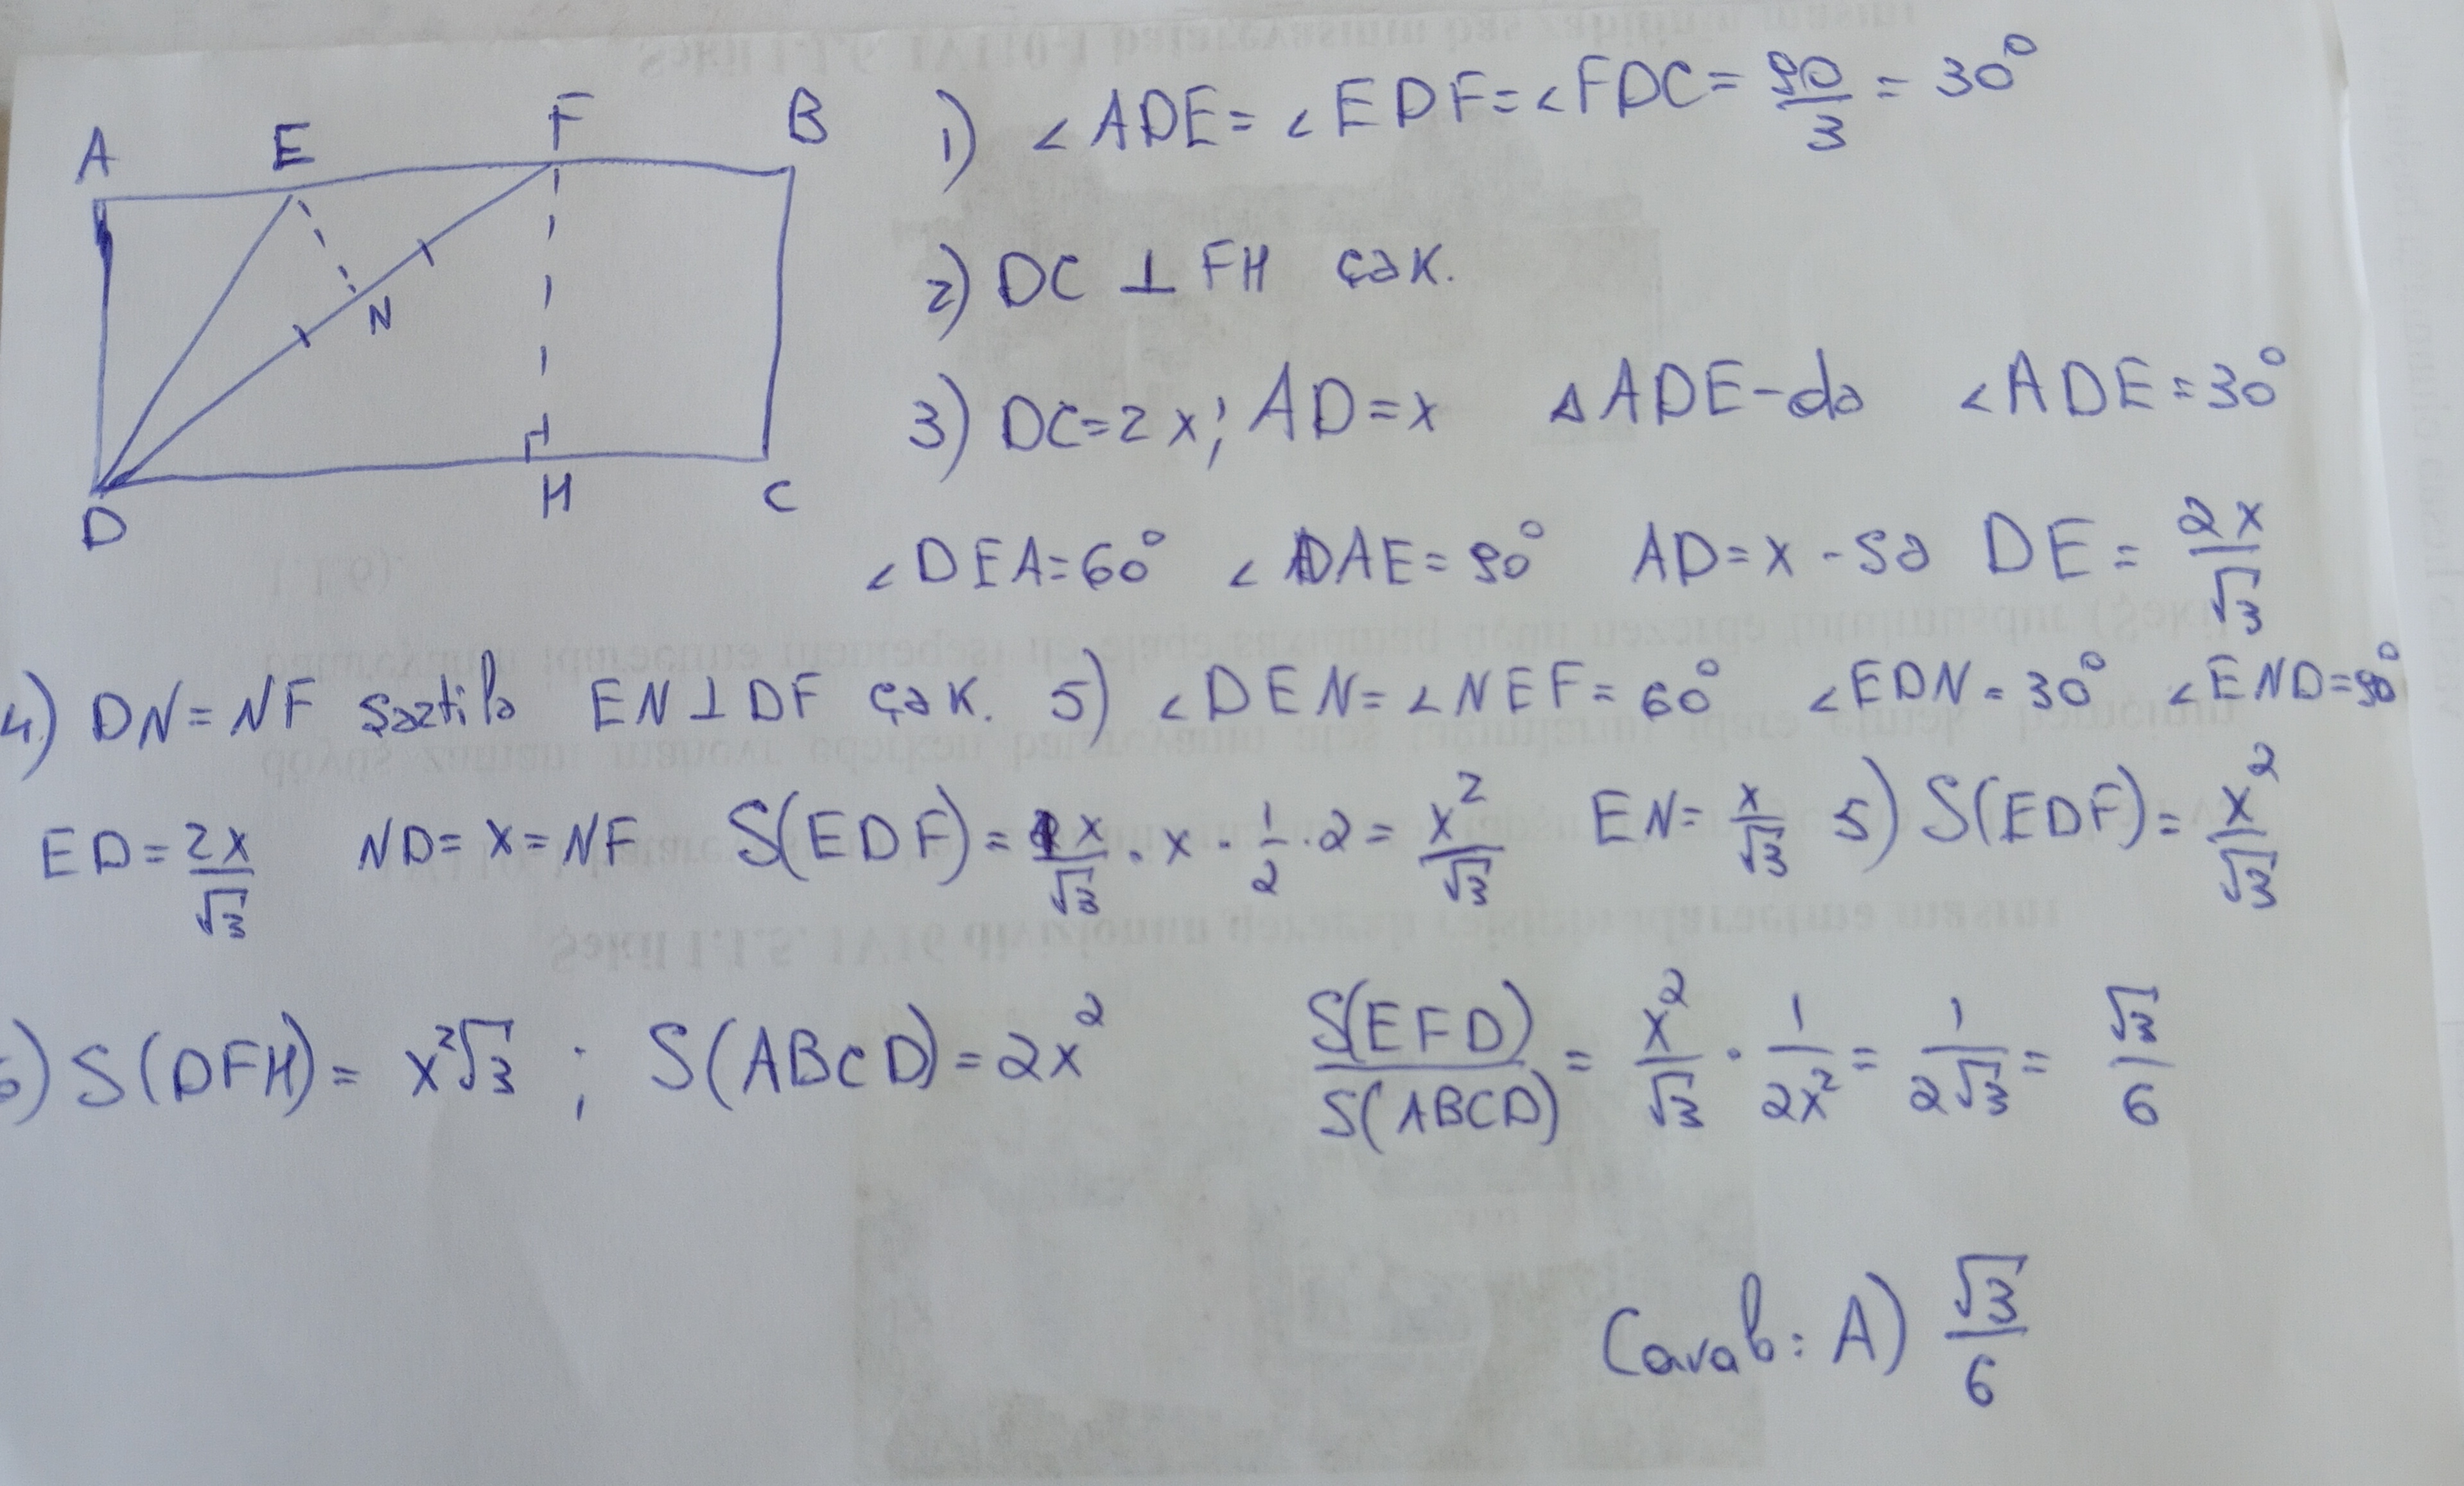 A E F B
N
D H C
1) ∠ADE = ∠EDF = ∠FDC = 90/3 = 30°
2) DC ⊥ FH çək.
3) DC = 2x; AD = x △ADE-də ∠ADE = 30°
∠DEA = 60° ∠DAE = 90° AD = x - sə DE = 2x/√3
4) DN = NF şərtilə EN ⊥ DF çək. 5) ∠DEN = ∠NEF = 60° ∠EDN = 30° ∠END = 90°
ED = 2x/√3 ND = x = NF S(EDF) = x/√3 · x · 1/2 · 2 = x²/√3 EN = x/√3 5) S(EDF) = x²/√3
6) S(DFH) = x²√3 ; S(ABCD) = 2x² S(EFD)/S(ABCD) = x²/√3 · 1/2x² = 1/2√3 = √3/6
Cavab: A) √3/6